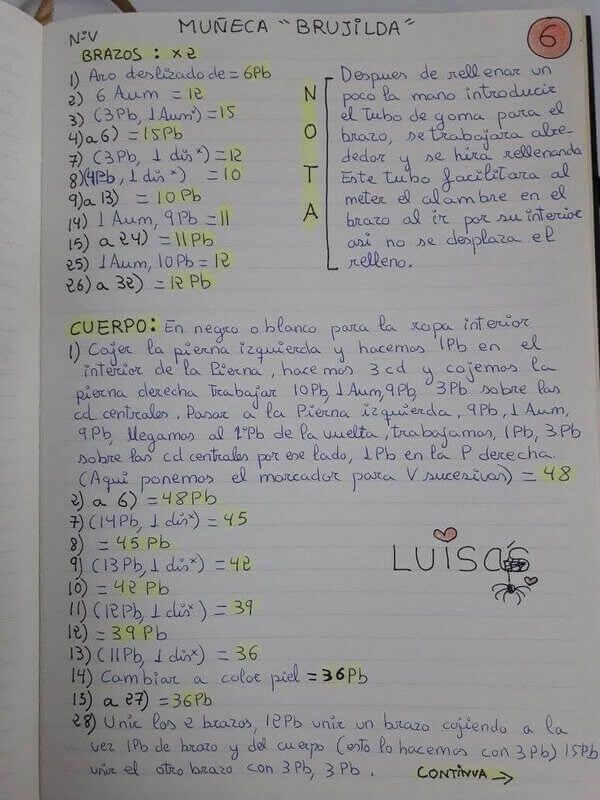 MUÑECA "BRUJILDA"
6
NºV
BRAZOS: x2
1) Aro deslizado de = 6Pb
2) 6 Aum = 12
3) (3Pb, 1 Aumˣ) = 15
4) a 6) = 15Pb
7) (3Pb, 1 disˣ) = 12
8) (4Pb, 1 disˣ) = 10
9) a 13) = 10Pb
14) 1 Aum, 9Pb = 11
15) a 24) = 11Pb
25) 1 Aum, 10Pb = 12
26) a 32) = 12Pb
NOTA
Despues de rellenar un
poco la mano introducir
el Tubo de goma para el
brazo, se trabajara alre-
dedor y se hira rellenando
Este tubo facilitara al
meter el alambre en el
brazo al ir por su interior
asi no se desplaza el
relleno.
CUERPO: En negro o blanco para la ropa interior
1) Cojer la pierna izquierda y hacemos 1Pb en el
interior de la Pierna, hacemos 3 cd y cojemos la
pierna derecha Trabajar 10Pb, 1 Aum, 9Pb, 3Pb sobre las
cd centrales. Pasar a la Pierna izquierda, 9Pb, 1 Aum,
9Pb, llegamos al 1ºPb de la vuelta, trabajamos, 1Pb, 3Pb
sobre las cd centrales por ese lado, 1Pb en la P derecha.
(Aqui ponemos el marcador para V sucesivas) = 48
2) a 6) = 48Pb
7) (14Pb, 1 disˣ) = 45
8) = 45Pb
9) (13Pb, 1 disˣ) = 42
10) = 42Pb
11) (12Pb, 1 disˣ) = 39
12) = 39Pb
13) (11Pb, 1 disˣ) = 36
14) Cambiar a color piel = 36Pb
15) a 27) = 36Pb
28) Unir los 2 brazos, 12Pb unir un brazo cojiendo a la
vez 1Pb de brazo y del cuerpo (esto lo hacemos con 3Pb) 15Pb
unir el otro brazo con 3Pb, 3Pb.
CONTINUA →
LUISA'S